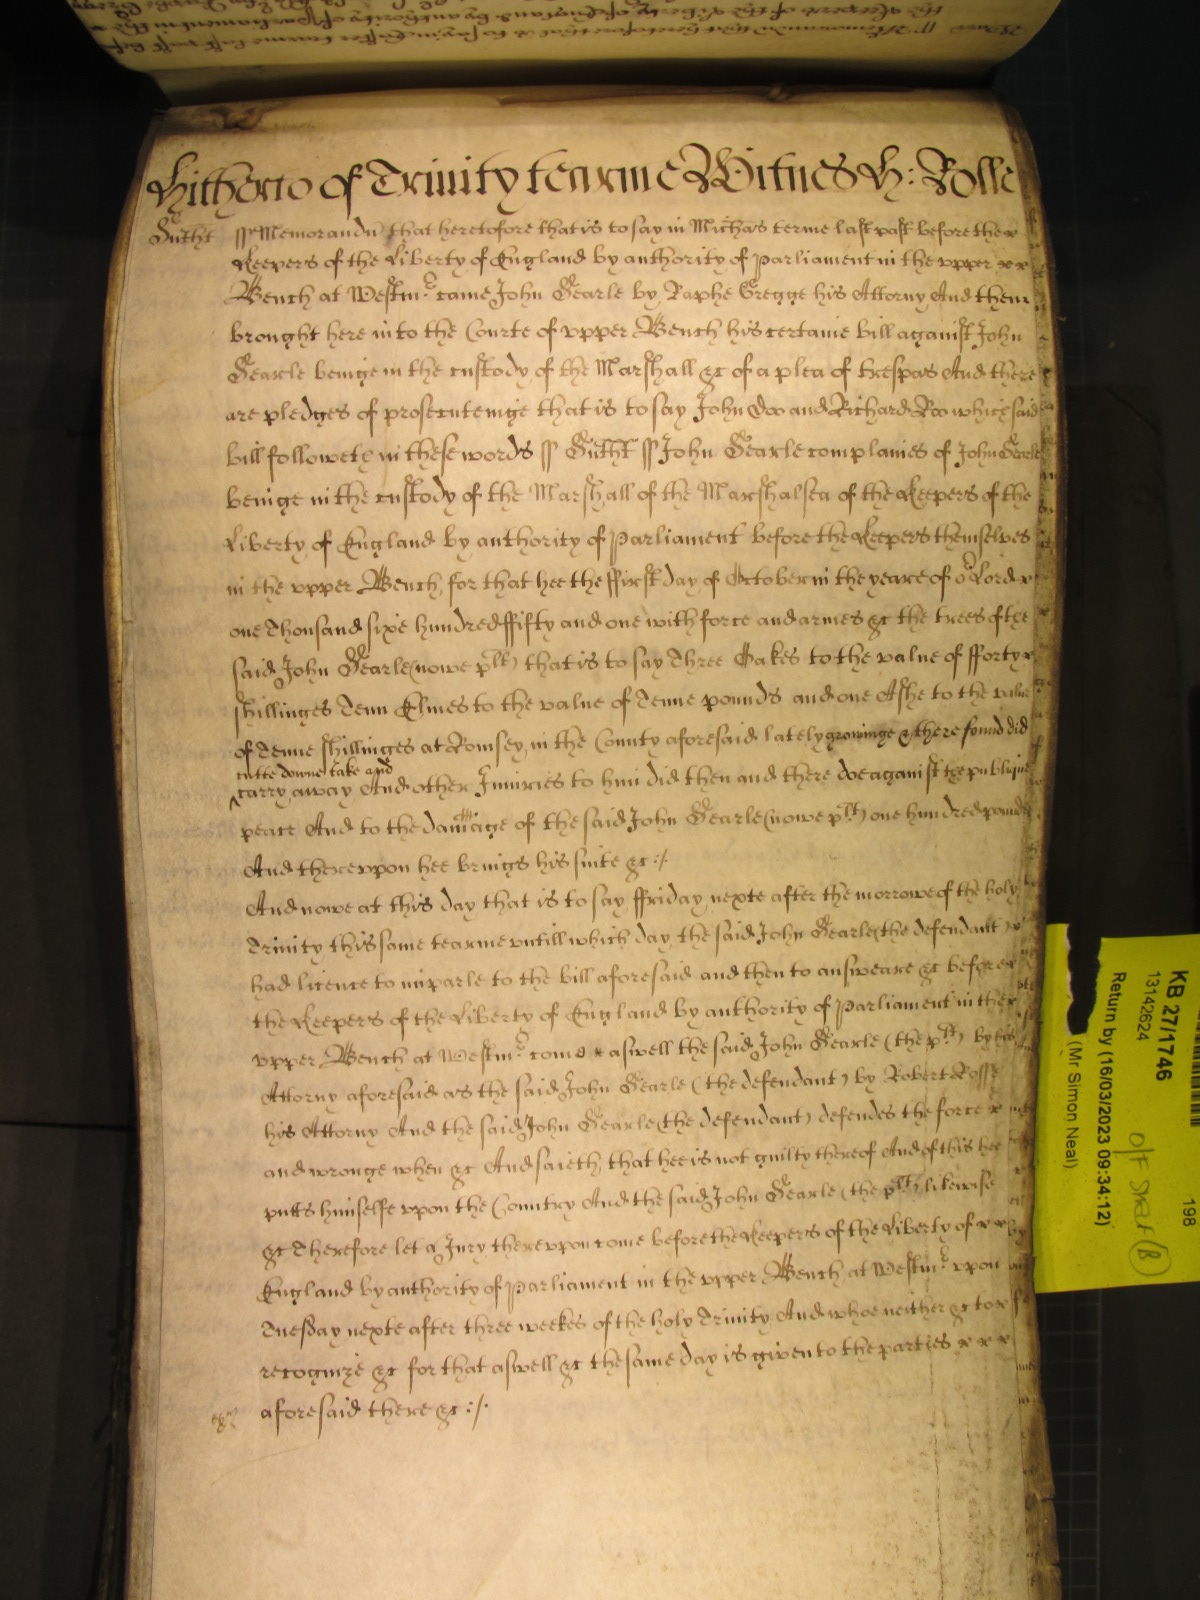 Hitherto of Trinity tearme Witnes H: Rolle
Suth't ss Memorandu that heretofore that is to say in Michas terme last past before the
Keepers of the Liberty of England by authority of Parliament in the vpper
Bench at Westmr came John Searle by Raphe Gregge his Attorny And then
brought here into the Courte of vpper Bench his certaine bill against John
Searle beinge in the custody of the Marshall &c of a plea of trespas And there
are pledges of prosecuteinge that is to say John Doo and Richard Roo which said
bill followeth in these words ss Suth't ss John Searle complaines of John Searle
beinge in the custody of the Marshall of the Marshalsea of the Keepers of the
Liberty of England by authority of Parliament before the Keepers themselves
in the vpper Bench, for that hee the ffirst day of October in the yeare of or Lord
one Thousand sixe hundred ffifty and one with force and armes &c the trees of the
said John Searle (nowe plt) that is to say Three Oakes to the value of fforty
shillinges Tenn Elmes to the value of Tenne pounds and one Ashe to the value
of Tenne shillinges at Romsey in the County aforesaid lately growinge & there found did
cutte downe take and
carry away And other Iniuries to him did then and there doe against the publique
peace And to the damage of the said John Searle (nowe plt) one hundred pounds
And therevpon hee brings his suite &c :/.
And nowe at this day that is to say ffriday nexte after the morrowe of the holy
Trinity this same tearme vntill which day the said John Searle (the defendant)
had licence to imparle to the bill aforesaid and then to answeare &c before
the Keepers of the Liberty of England by authority of Parliament in the
vpper Bench at Westmr come aswell the said John Searle (the plt) by his
Attorny aforesaid as the said John Searle (the defendant) by Robert Rosse
his Attorny And the said John Searle (the defendant) defendes the force
and wronge when &c And saieth that hee is not guilty thereof And of this hee
putts himselfe vpon the Country And the said John Searle (the plt) likewise
&c Therefore let a Jury therevpon come before the Keepers of the Liberty of
England by authority of Parliament in the vpper Bench at Westmr vpon
Tuesday nexte after three weekes of the holy Trinity And whoe neither &c to
recognize &c for that aswell &c the same day is given to the parties
aforesaid there &c :/.
KB 27/1746
198
13142624
O/F Strat (B)
Return by (16/03/2023 09:34:12)
(Mr Simon Neal)